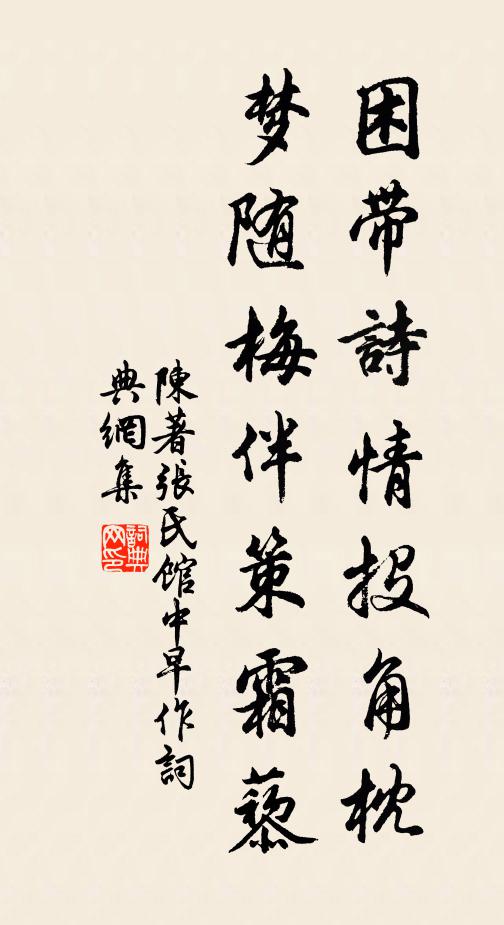 困带詩情投角枕
梦随梅伴策霜藜
陳著張民館中早作詞
典網集
詞典网印